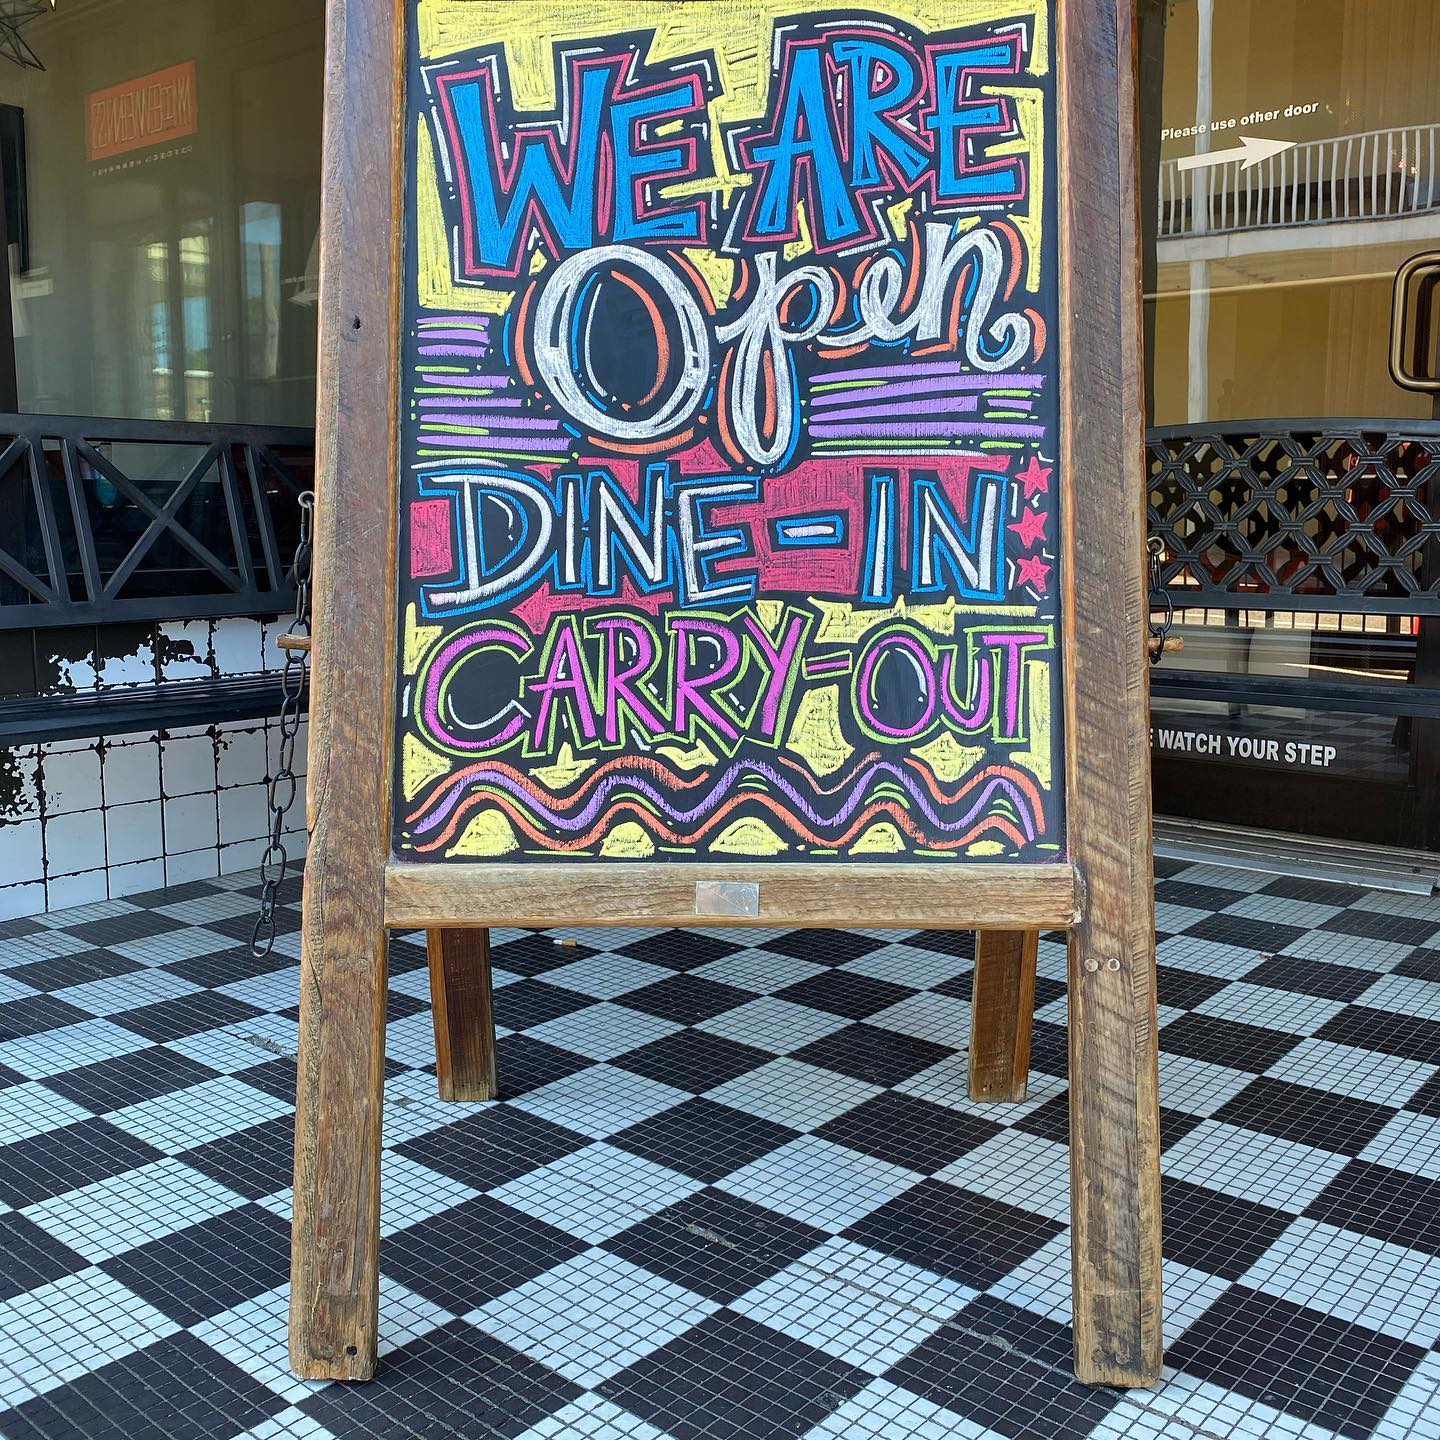 WE ARE
Open
DINE-IN
CARRY-OUT
Please use other door
WATCH YOUR STEP